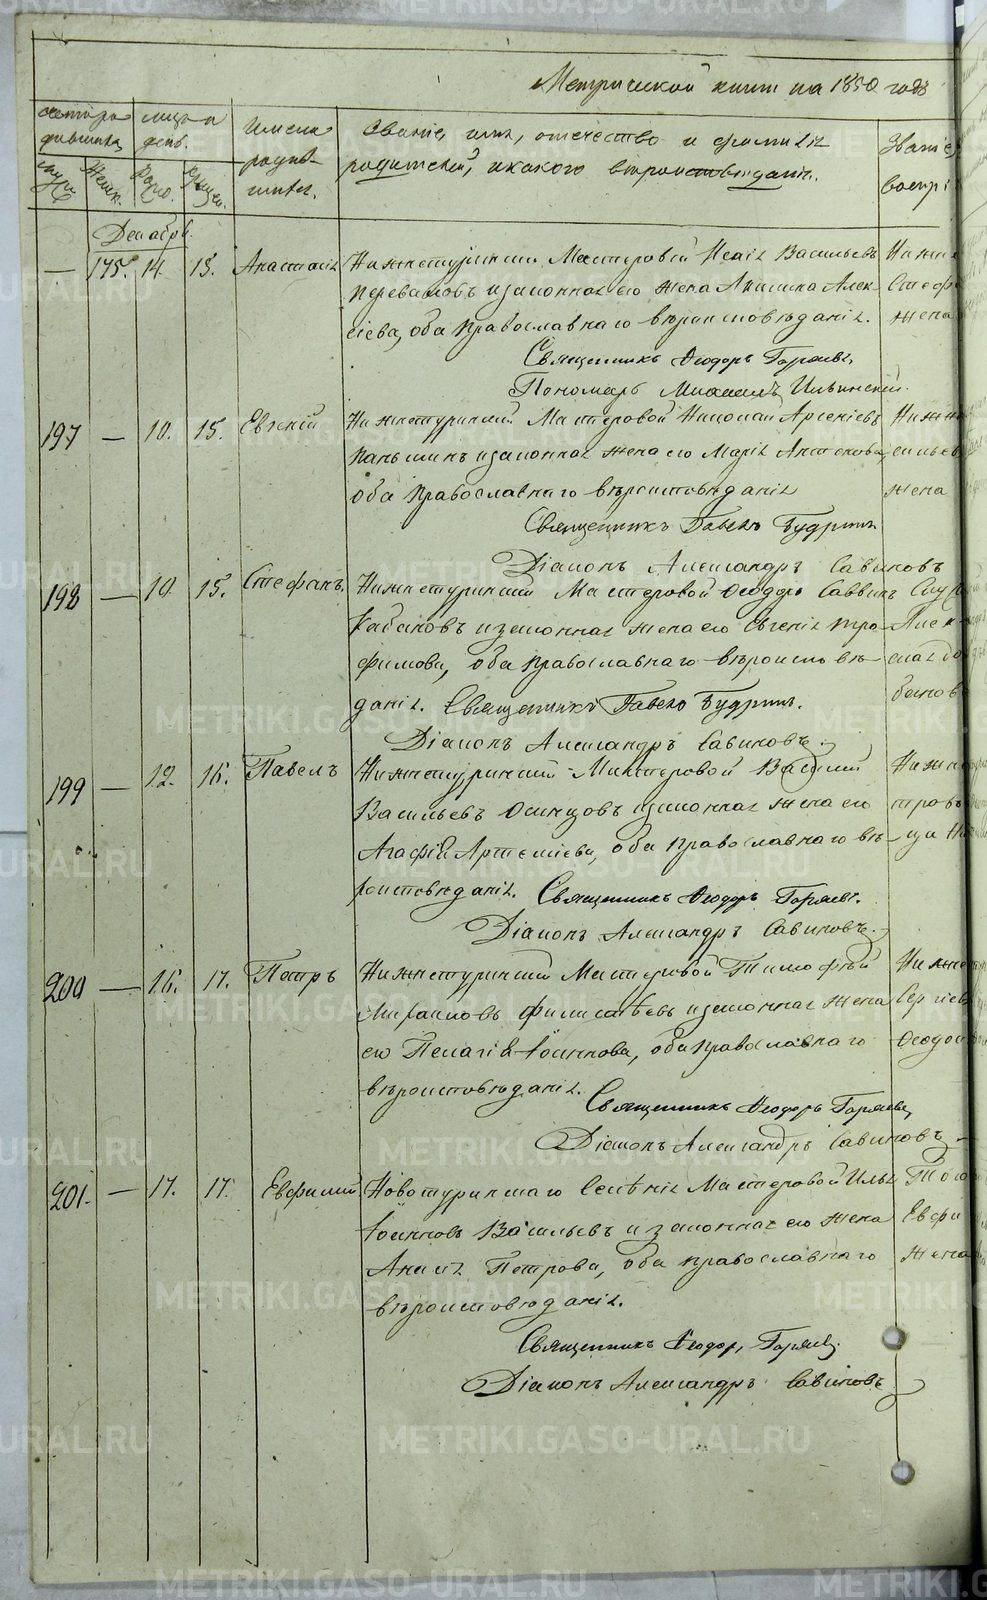 Метрической книги на 1850 годъ
Счетъ родившихся
Мѣсяцъ и день.
Имена родив-
шихся.
Званіе, имя, отечество и фамилія
родителей, и какого вѣроисповѣданія.
Званіе
воспрі
Декабрь.
— 175. 14. 15. Анастасія Нижнетуринскій Мастеровой Исаія Васильевъ Нижне
Переваловъ и законная его жена Алексѣ- Стефа
ева, оба Православнаго вѣроисповѣданія. жена
Священникъ Ѳеодоръ Горяевъ.
Пономарь Михаилъ Ильинскій.
197 — 10. 15. Евгеній Нижнетуринскій Мастеровой Николай Арсеніевъ Нижне
и законная жена его Марія Антонова,
оба Православнаго вѣроисповѣданія жена
Священникъ Павелъ Будринъ
Діаконъ Александръ Савиновъ
198 — 10 15. Стефанъ. Нижнетуринскій Мастеровой Ѳеодоръ Саввинъ
Кабаковъ и законная жена его Евгенія Тро-
фимова, оба православнаго вѣроисповѣ-
данія. Священникъ Павелъ Будринъ.
Діаконъ Александръ Савиновъ.
199 — 12. 16. Павелъ Нижнетуринскій Мастеровой Василій Нижне
Васильевъ Осинцовъ и законная жена его
Агафія Артеміева, оба Православнаго вѣ-
роисповѣданія. Священникъ Ѳеодоръ Горяевъ.
Діаконъ Александръ Савиновъ.
200 — 16. 17. Петръ Нижнетуринскій Мастеровой Тимофей Нижне
и законная жена Сергіев
его Пелагія Іоаннова, оба православнаго Ѳеодос
вѣроисповѣданія.
Священникъ Ѳеодоръ Горяевъ,
Діаконъ Александръ Савиновъ
201. — 17. 17. Евфимій Новотуринскаго Селенія Мастеровой Илья Того
Іоанновъ Васильевъ и законная его жена Евфи
Петрова, оба православнаго жена
вѣроисповѣданія.
Священникъ Ѳеодоръ Горяевъ.
Діаконъ Александръ Савиновъ
METRIKI.GASO-URAL.RU